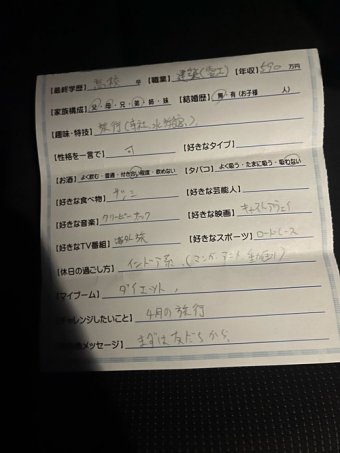 【最終学歴】 高校 卒 【職業】 建築(電工) 【年収】 590 万円
【家族構成】 父・母・兄・弟・姉・妹 【結婚歴】 無・有(お子様 人)
【趣味・特技】 旅行(寺社、水族館、)
【性格を一言で】 【好きなタイプ】
【お酒】 よく飲む・普通・付き合い程度・飲めない 【タバコ】 よく吸う・たまに吸う・吸わない
【好きな食べ物】 【好きな芸能人】
【好きな音楽】 クリーピーナッツ 【好きな映画】 キャストアウェイ
【好きなTV番組】 海外旅 【好きなスポーツ】 ロードレース
【休日の過ごし方】 インドア系、(マンガ、アニメ、動画)
【マイブーム】 ダイエット、
【チャレンジしたいこと】 4月の旅行
メッセージ】 まずは友だちから、